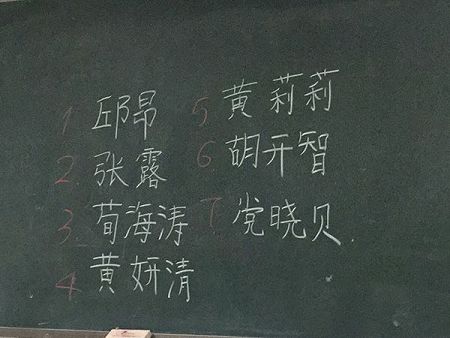 1 邱昂
2. 张露
3. 荀海涛
4 黄妍清
5. 黄莉莉
6. 胡开智
7. 党晓贝.